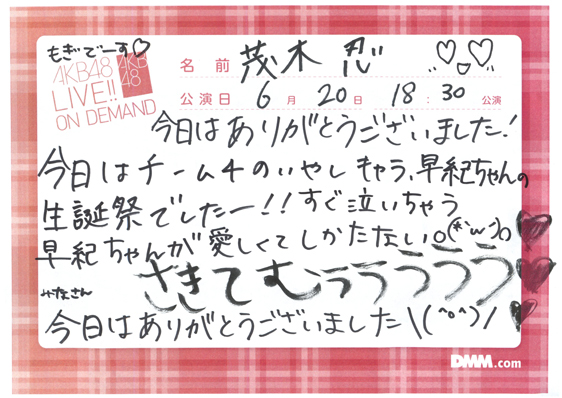 もぎでーす♡
AKB48
LIVE!!
ON DEMAND
AKB
48
名前 茂木 忍
公演日 6月 20日 18:30 公演
今日はありがとうございました!
今日はチーム4のいやしキャラ、早紀ちゃんの
生誕祭でしたー!!すぐ泣いちゃう
早紀ちゃんが愛しくてしかたないo(*´ω`)o
さきてむぅぅぅぅぅ
みなさん
今日はありがとうございました\(^o^)/
DMM.com